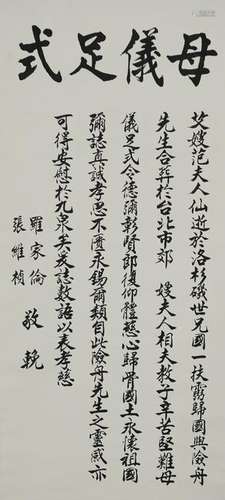 母儀足式
艾嫂范夫人仙逝於洛杉磯世兄國一扶靈歸國與險舟
先生合葬於台北市郊 嫂夫人相夫教子辛苦堅難母
儀足式令德彌彰賢郎復仰體慈心歸骨國土永懷祖國
彌誌真誠孝思不匱永錫爾類自此險舟先生之靈感亦
可得安慰於九泉矣爰誌數語以表孝慈
羅家倫
張維楨 敬輓